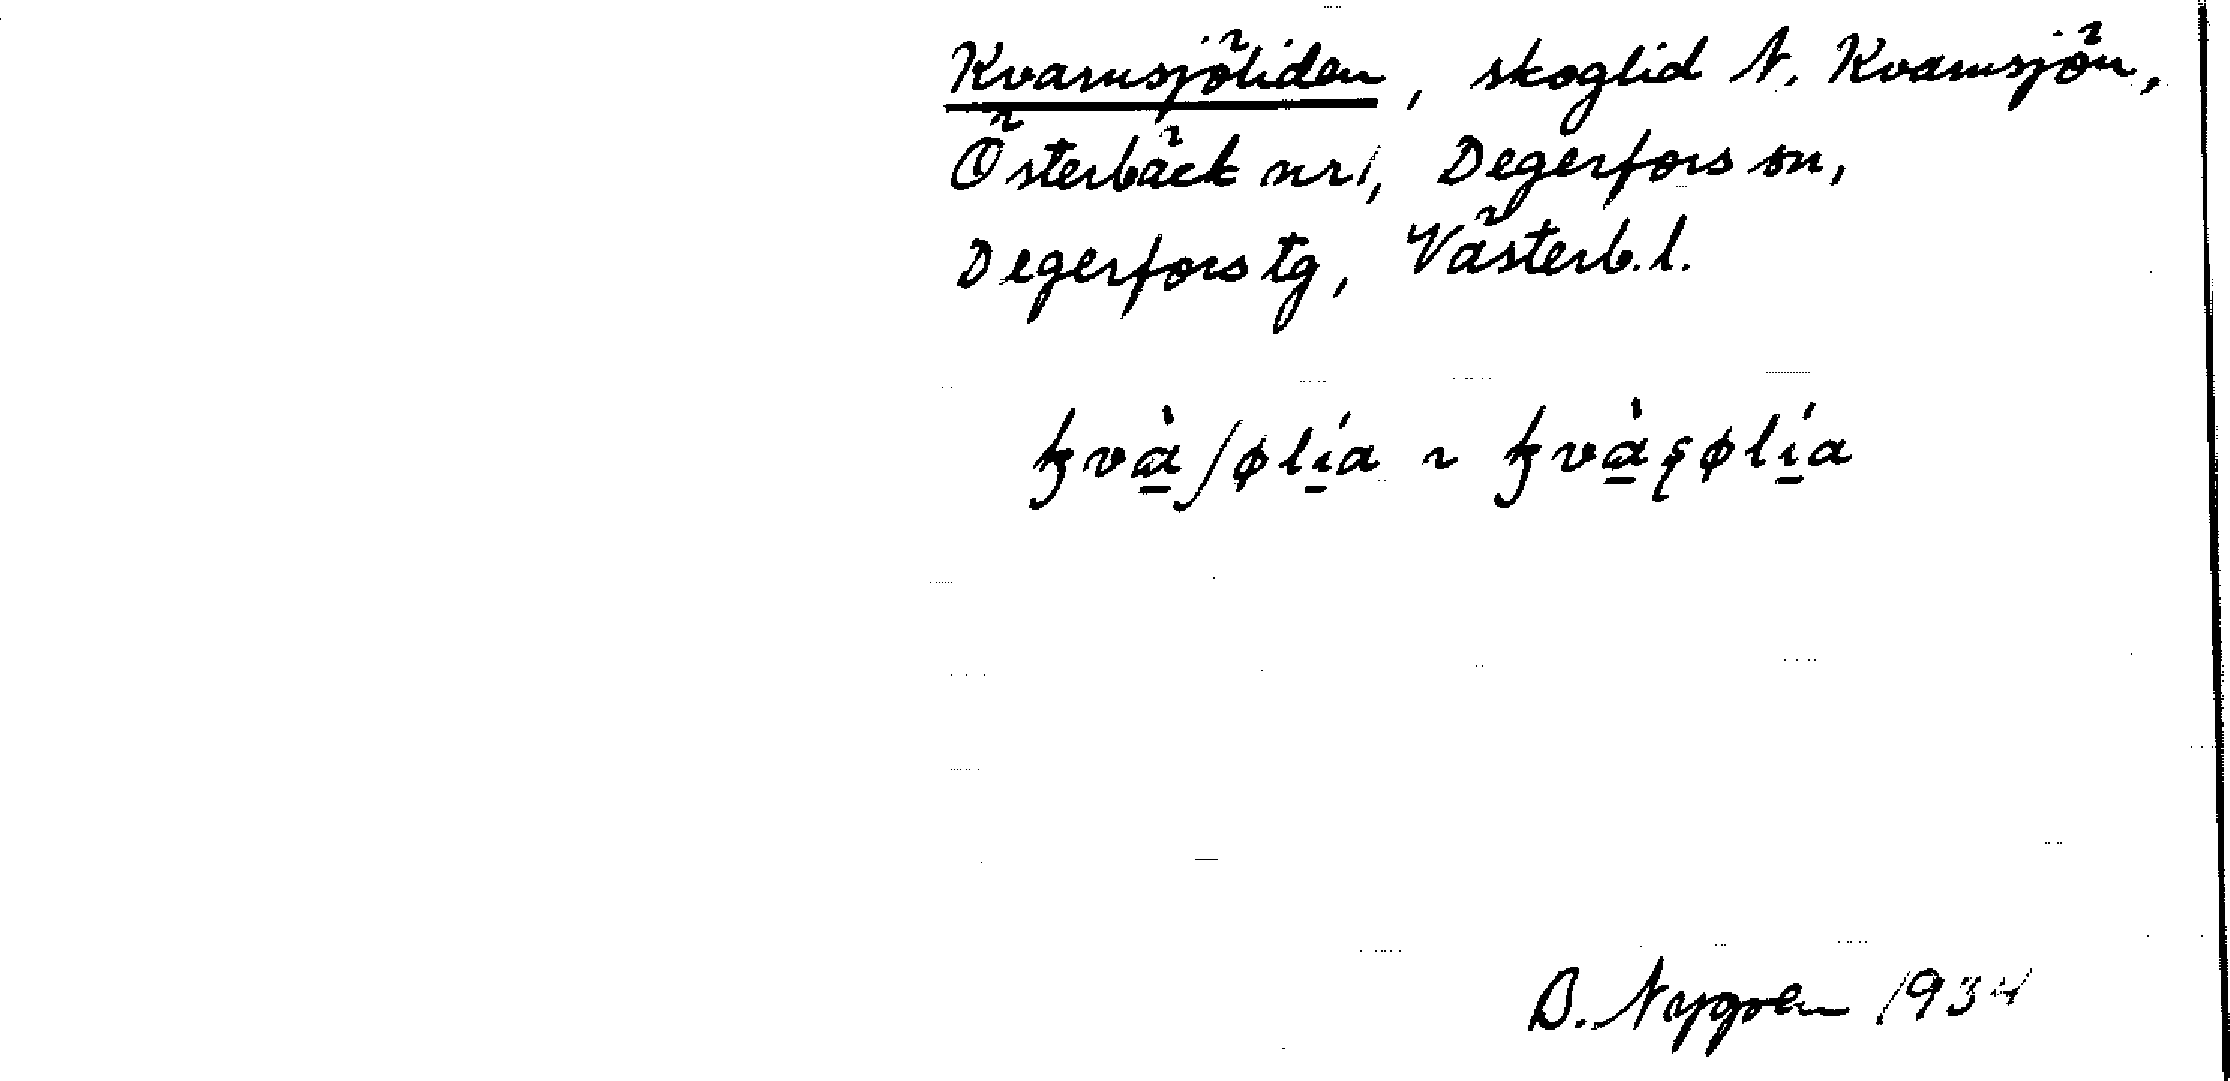 Kvarnsjöliden, skoglid N. Kvarnsjön,
Österbäck nr 1, Degerfors sn,
Degerfors tg, Västerb. l.
ꜧvàʃølía ~ ꜧvàçølía
B. Nygren 1934